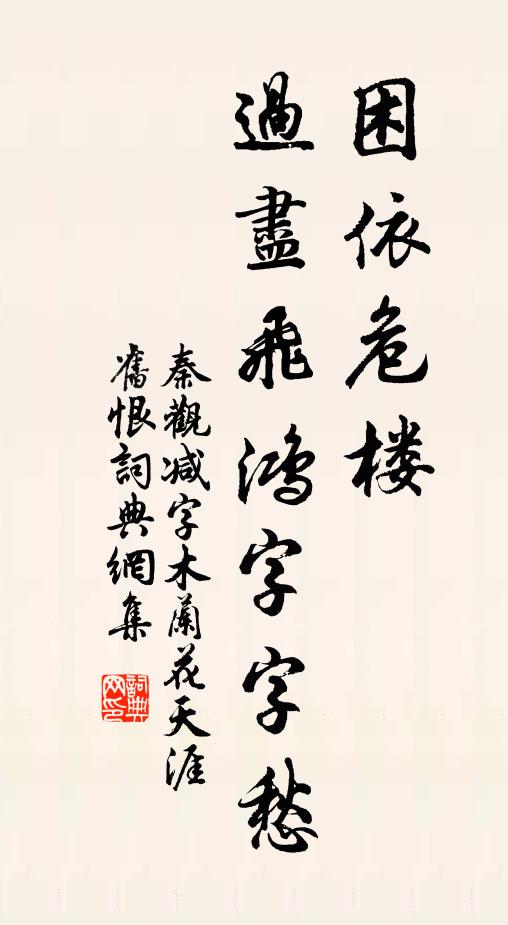 困依危楼
過盡飛鴻字字愁
秦觀减字木蘭花天涯
舊恨詞典網集
詞典
网印